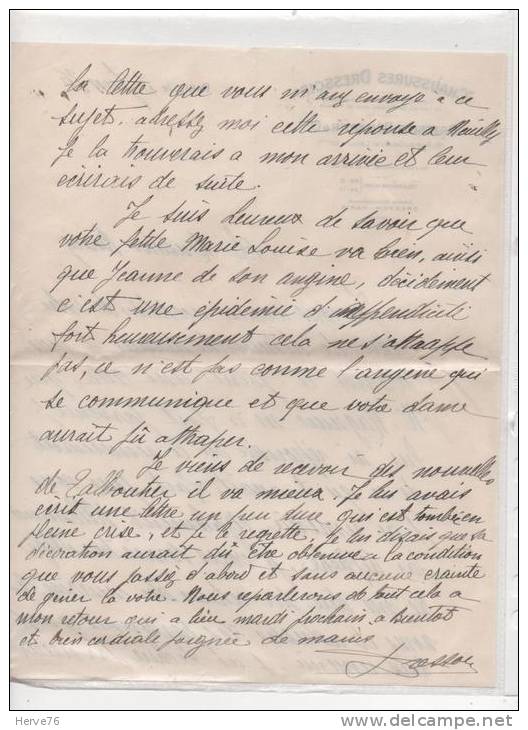 la lettre que vous m'avez envoyé a ce
sujet. adressez moi cette réponse a Neuilly
je la trouverais a mon arrivée et leur
ecrirais de suite.
Je suis heureux de savoir que
votre petite Marie Louise va bien, ainsi
que Jeanne de son angine, décidement
c'est une épidémie d'appendicite
fort heureusement cela ne s'attrappe
pas, ce n'est pas comme l'angine qui
se communique et que votre dame
aurait pu attraper.
Je viens de recevoir des nouvelles
de il va mieux. Je lui avais
ecrit une lettre un peu dure qui est tombée en
pleine crise, et je le regrette, je lui disais que sa
décoration aurait dû être obtenue a la condition
que vous passiez d'abord et sans aucune crainte
de gener la votre. Nous reparlerons de tout cela a
mon retour qui a lieu mardi prochain, a bientot
et bien cordiale poignée de mains
Dressoir
CHAUSSURES DRESSOIR
Herve76
www.delcampe.net